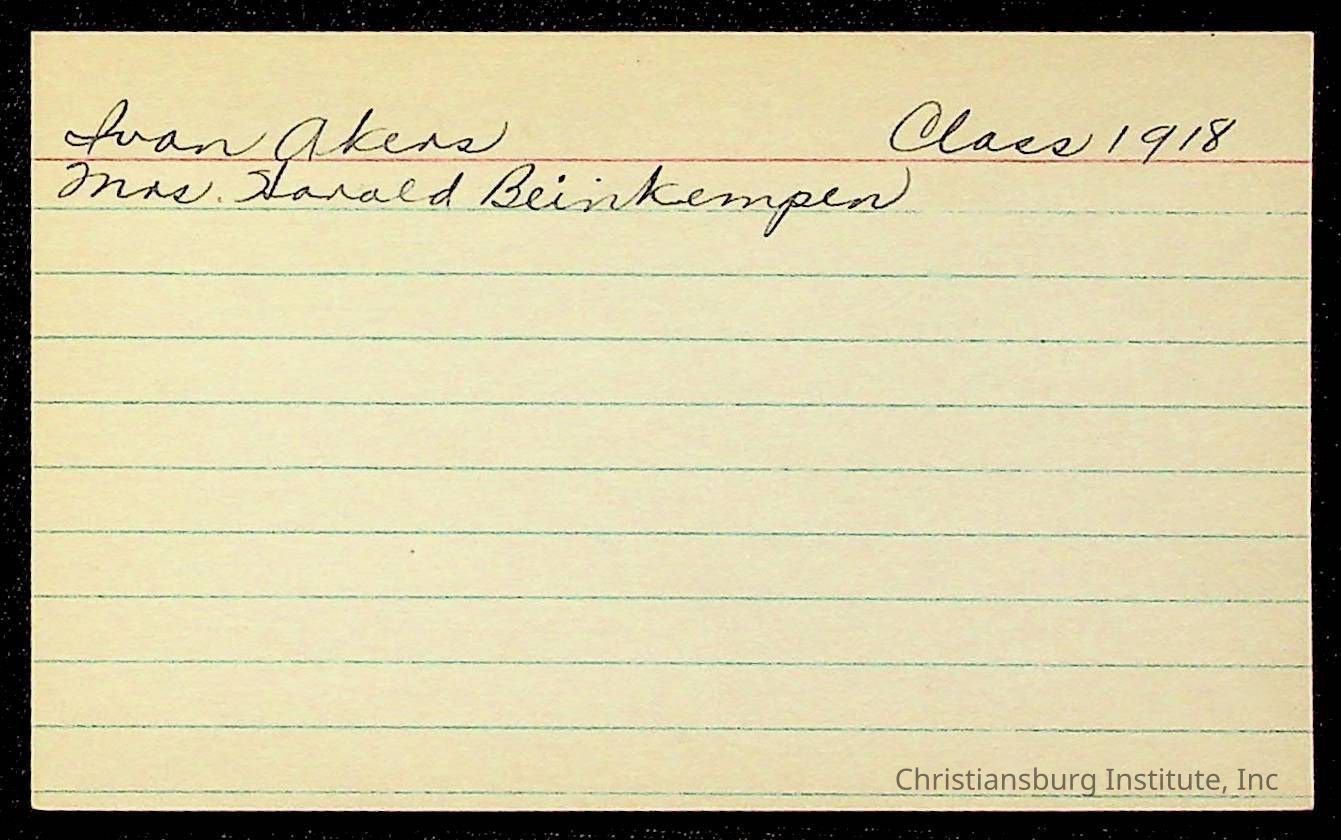 Ivan Akers Class 1918
Mrs. Harald Beinkempen
Christiansburg Institute, Inc